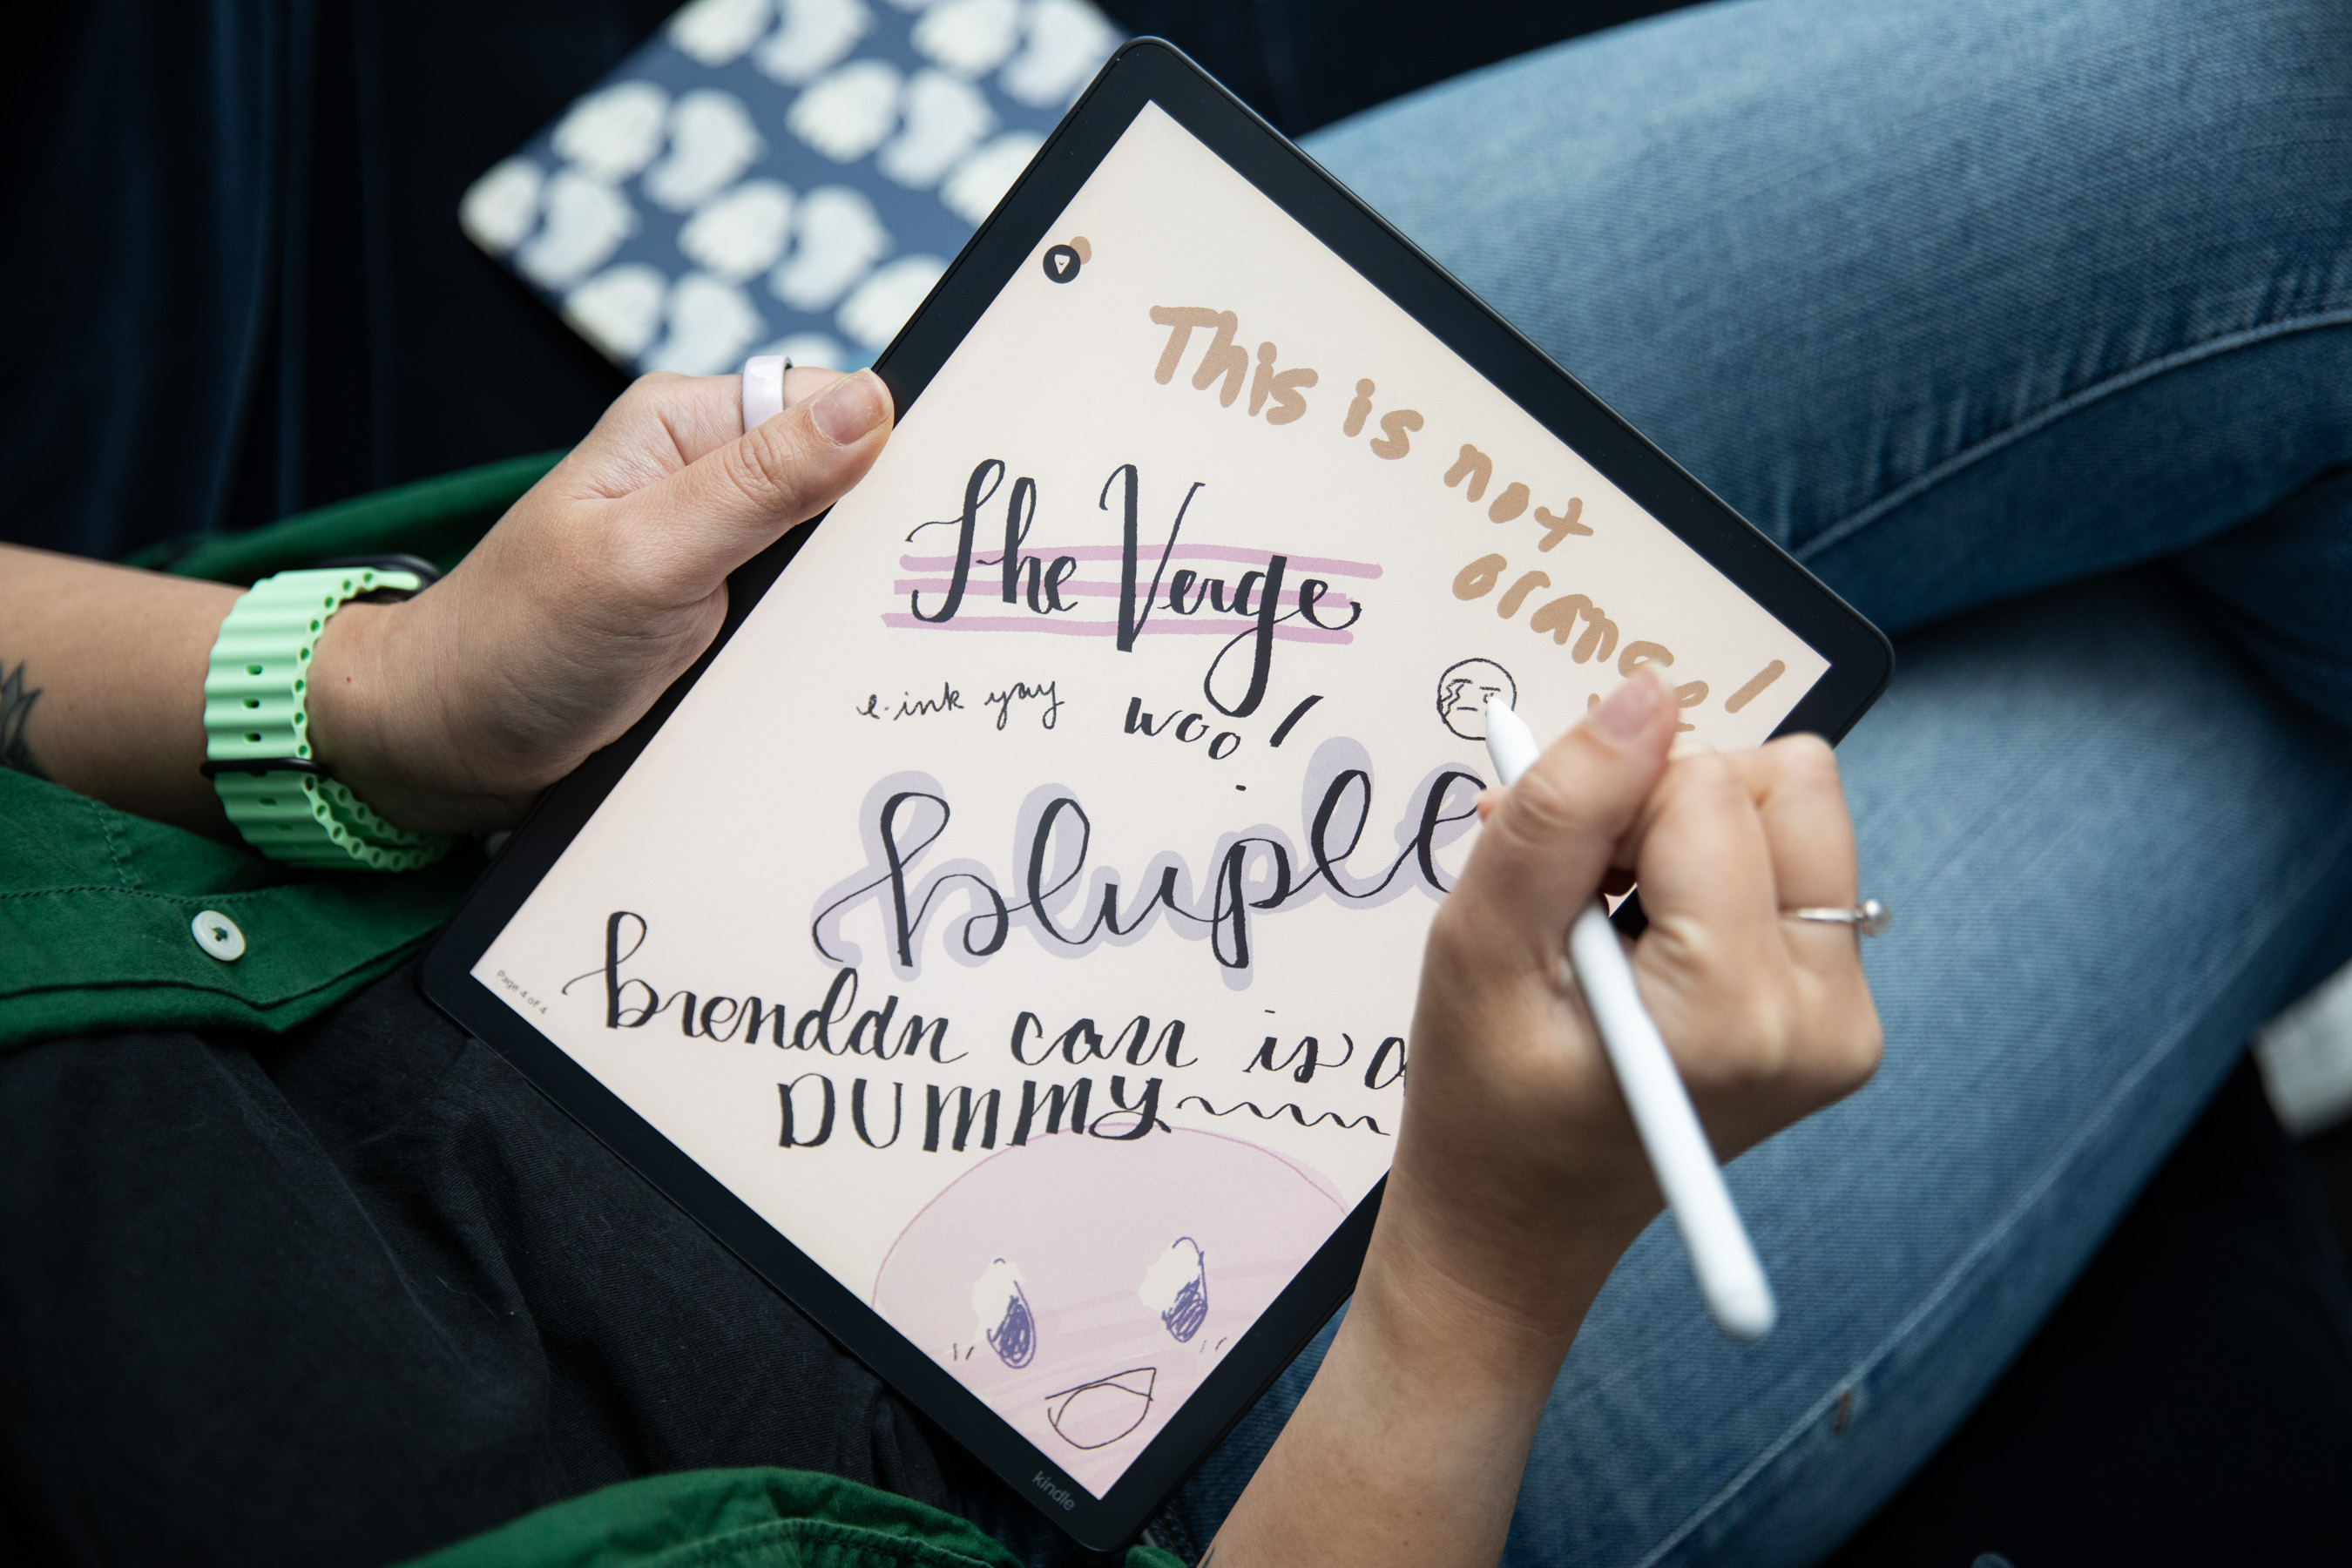 This is not
orange!
The Verge
e-ink yay
woo!
blurple
brendan carr is a
DUMMY
Page 4 of 4
kindle